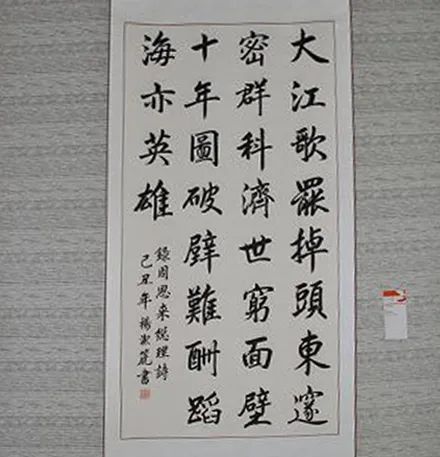 大江歌罷掉頭東邃
密群科濟世窮面壁
十年圖破壁難酬蹈
海亦英雄
錄周恩来總理詩
己丑年楊淑篪書